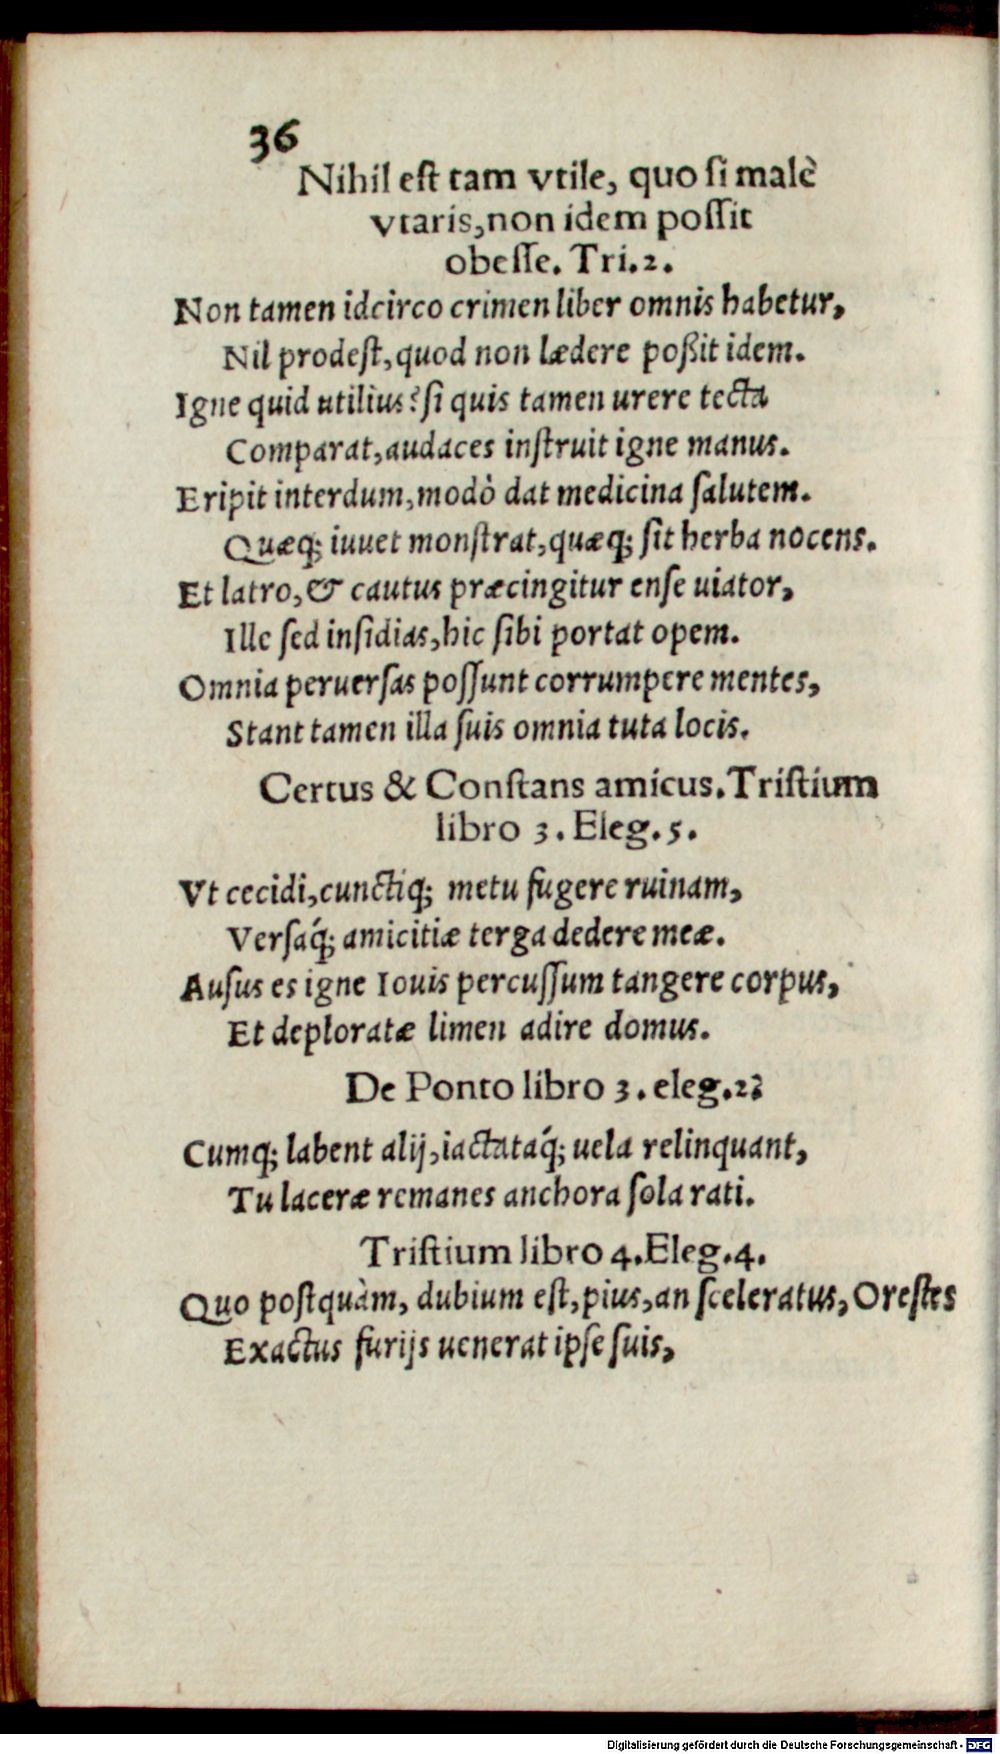 36
Nihil est tam vtile, quo si malè
vtaris, non idem possit
obesse. Tri. 2.
Non tamen idcirco crimen liber omnis habetur,
Nil prodest, quod non lædere poßit idem.
Igne quid utilius? si quis tamen urere tecta
Comparat, audaces instruit igne manus.
Eripit interdum, modò dat medicina salutem.
Quæq; iuuet monstrat, quæq; sit herba nocens.
Et latro, & cautus præcingitur ense uiator,
Ille sed insidias, hic sibi portat opem.
Omnia peruersas possunt corrumpere mentes,
Stant tamen illa suis omnia tuta locis.
Certus & Constans amicus. Tristium
libro 3. Eleg. 5.
Vt cecidi, cunctiq; metu fugere ruinam,
Versaq́; amicitiæ terga dedere meæ.
Ausus es igne Iouis percussum tangere corpus,
Et deploratæ limen adire domus.
De Ponto libro 3. eleg. 2?
Cumq; labent alij, iactataq́; uela relinquant,
Tu laceræ remanes anchora sola rati.
Tristium libro 4. Eleg. 4.
Quo postquàm, dubium est, pius, an sceleratus, Orestes
Exactus furijs uenerat ipse suis,
Digitalisierung gefördert durch die Deutsche Forschungsgemeinschaft - DFG